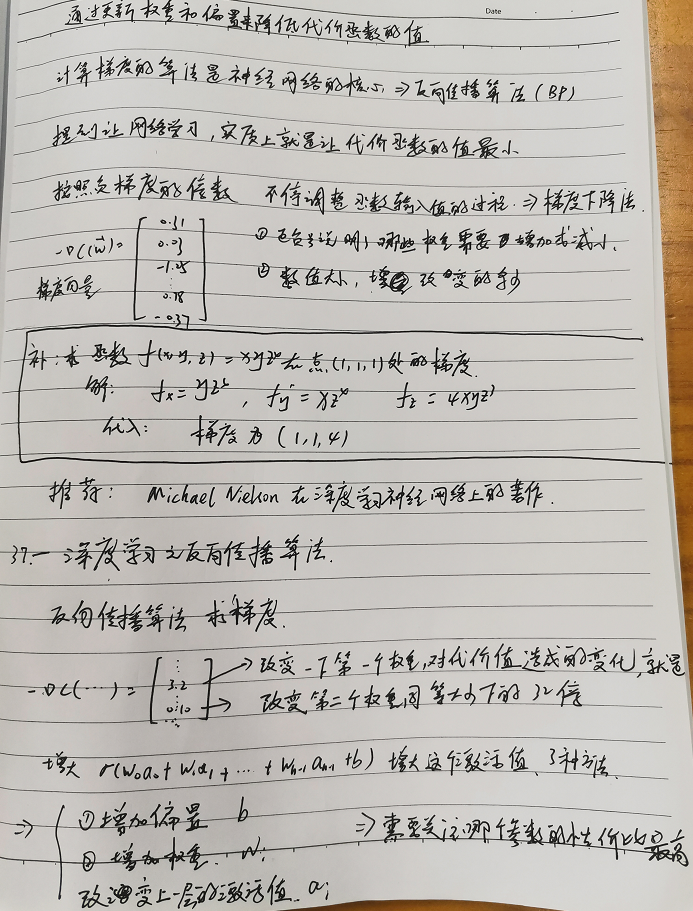 Date
通过更新权重和偏置来降低代价函数的值
计算梯度的算法是神经网络的核心 ⇒ 反向传播算法 (BP)
提到让网络学习,实质上就是让代价函数的值最小
按照负梯度的倍数 不停调整函数输入值的过程 ⇒ 梯度下降法.
-∇C(w⃗) = [0.31 0.03 -1.25 ⋮ 0.78 -0.37]
① 正负号说明,哪些权重需要增加或减小.
梯度向量
② 数值大小,改变的多少
补: 求函数 f(x,y,z) = xyz⁴ 在点 (1,1,1) 处的梯度.
解: fx = yz⁴, fy = xz⁴ fz = 4xyz³
代入: 梯度为 (1,1,4)
推荐: Michael Nielson 在深度学习神经网络上的著作.
37.一 深度学习之反向传播算法.
反向传播算法 求梯度.
-∇C(⋯) = [⋮ 3.2 0.10 ⋮]
→ 改变一下第一个权重,对代价值造成的变化,就是
→ 改变第二个权重同等大小下的 32 倍
增大 σ(w₀a₀ + w₁a₁ + ⋯ + wₙ₋₁aₙ₋₁ + b) 增大这个激活值、3种方法.
⇒ ① 增加偏置 b
② 增加权重. wᵢ
⇒ 需要关注哪个参数的性价比最高
改变上一层的激活值. aᵢ